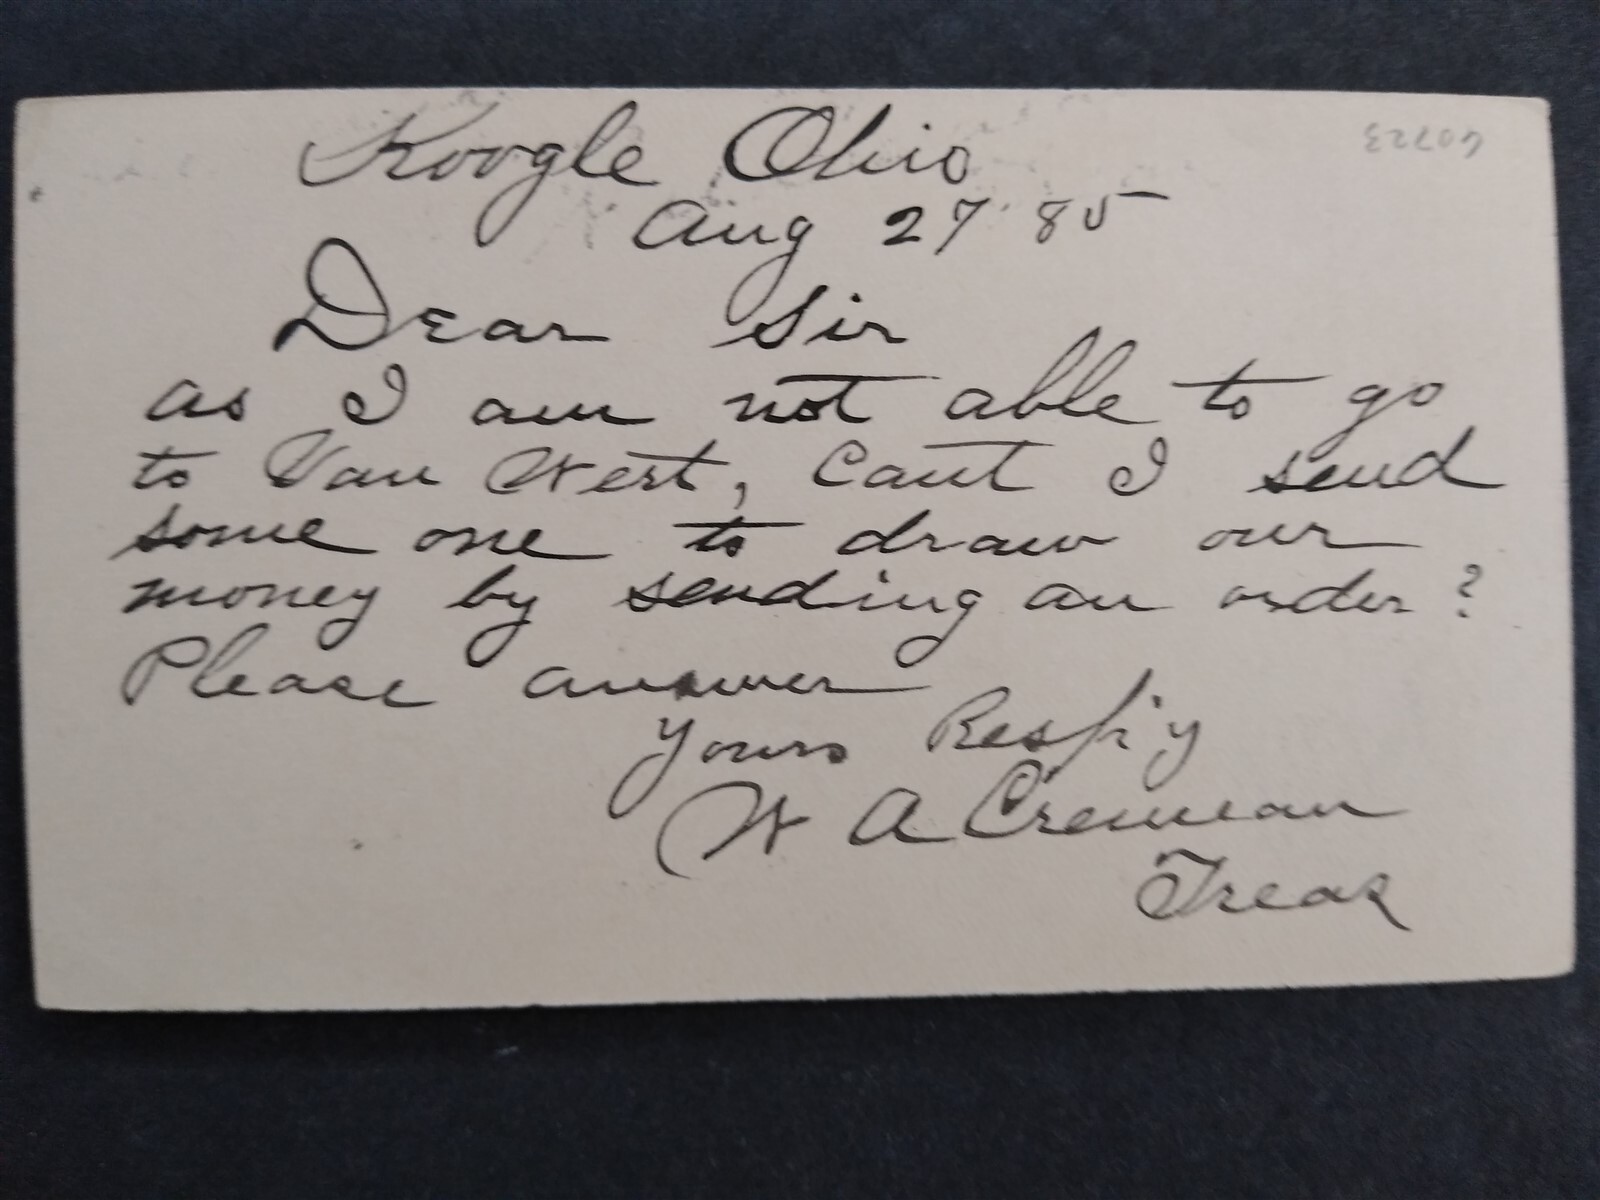 Koogle Ohio
Aug 27 85
Dear Sir
as I am not able to go
to Van Wert, Cant I send
some one to draw our
money by sending an order?
Please answer
Yours Resp'y
W A
Treas